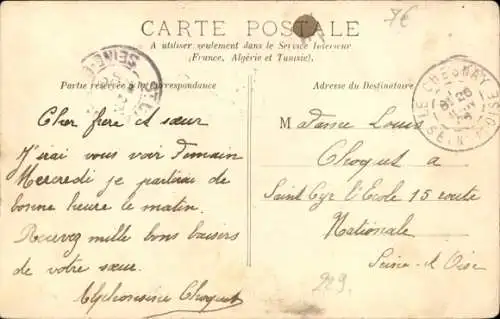 CARTE POSTALE
A utiliser seulement dans le Service Intérieur
(France, Algérie et Tunisie).
Partie réservée à la Correspondance
Adresse du Destinataire
Cher frere et sœur
J'irai vous voir demain
Mercredi je partirai de
bonne heure le matin.
Recevez mille bons baisers
de votre sœur.
Alphonsine Choquet
Madame Louis
Choquet a
Saint Cyr l'Ecole 15 route
Nationale
Seine-et Oise
7€
229.
CHESNAY
SEINE-ET-OISE
SEINE